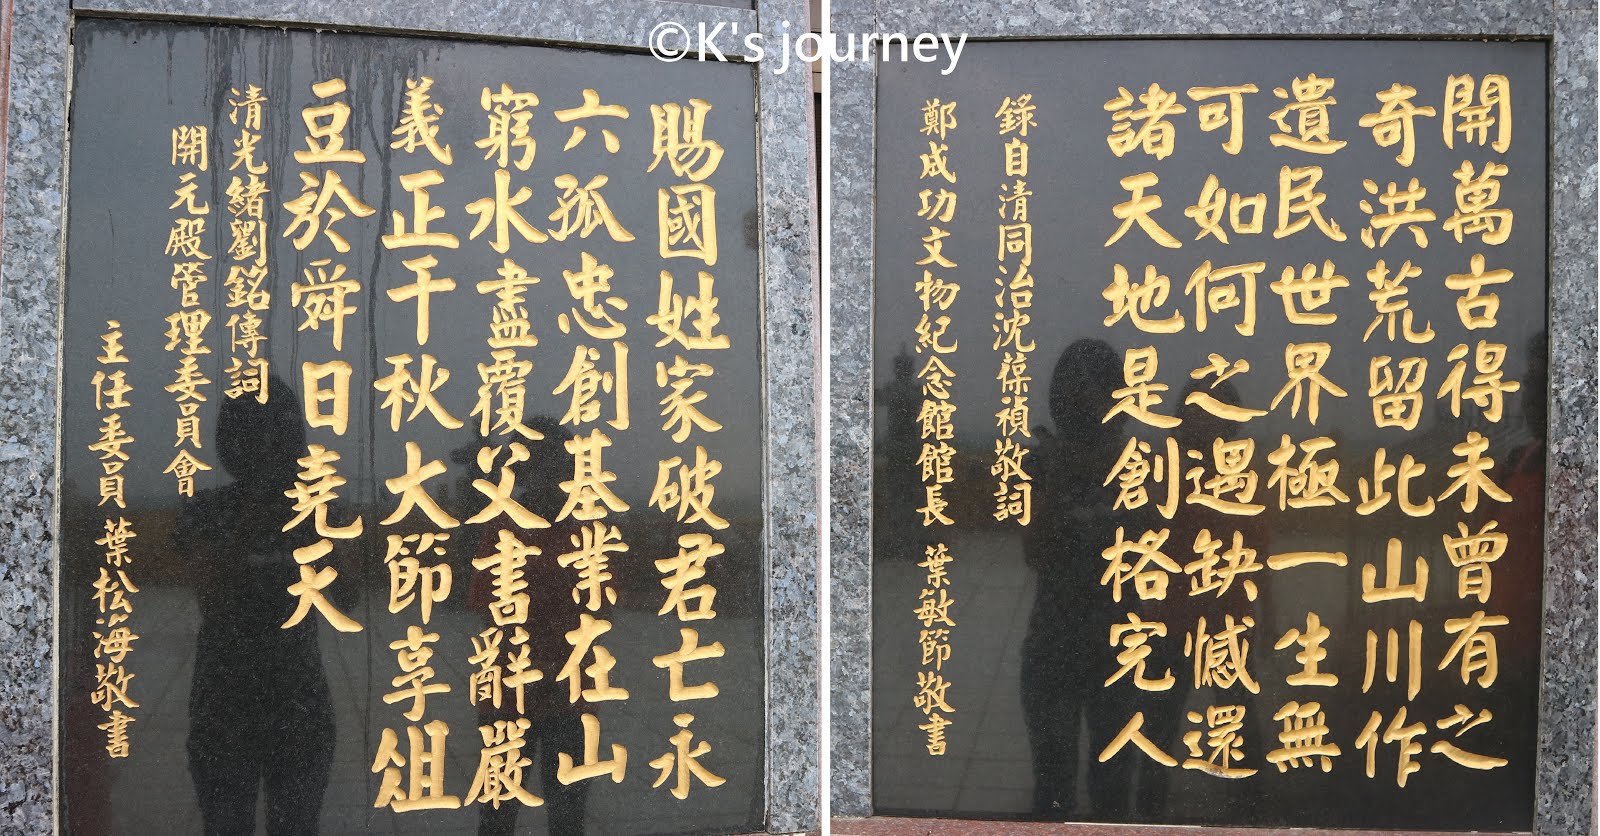 ©K's journey
賜國姓家破君亡永
六孤忠創基業在山
窮水盡覆父書辭嚴
義正千秋大節享俎
豆於舜日堯天
清光緒劉銘傳詞
開元殿管理委員會
主任委員 葉松海敬書
開萬古得未曾有之
奇洪荒留此山川作
遺民世界極一生無
可如何之遇缺憾還
諸天地是創格完人
錄自清同治沈葆禎敬詞
鄭成功文物紀念館館長 葉敏節敬書